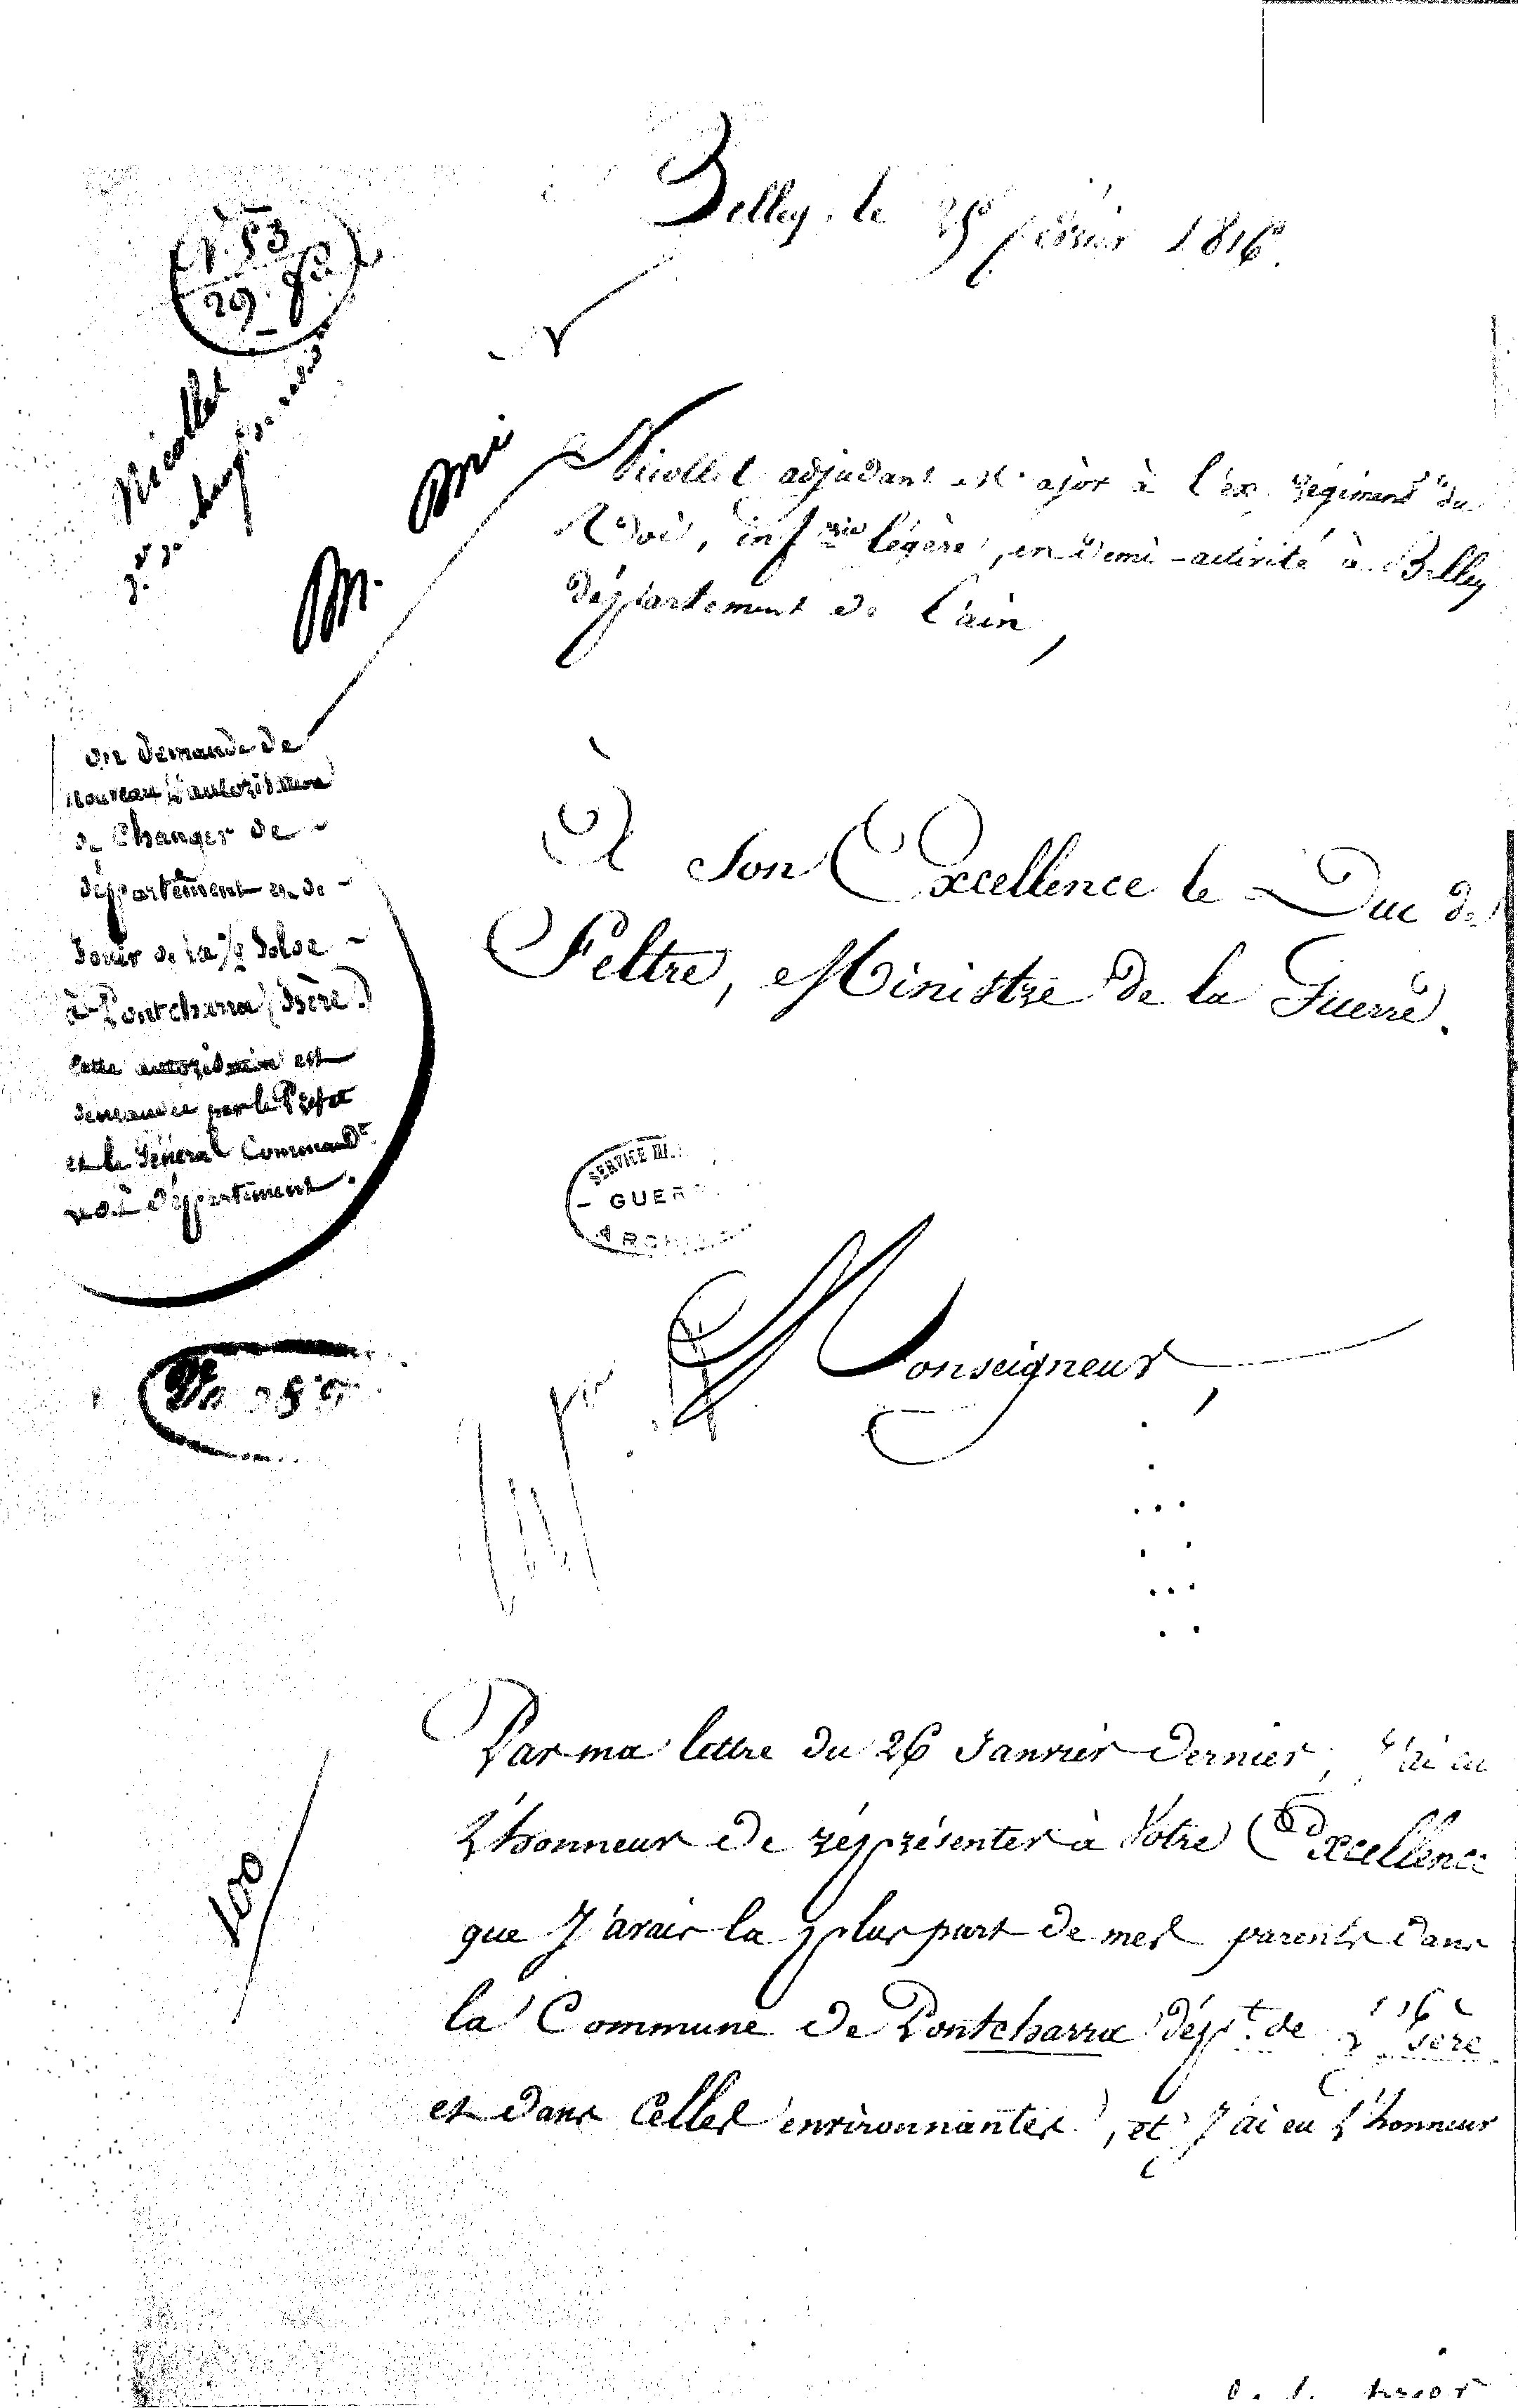 Belley, le 25 février 1816.
Nicollet adjudant major à l'ex régiment du
Roi, inf.rie légère, en demi-activité à Belley
département de l'ain,
À Son Excellence le Duc de
Feltre, Ministre de la Guerre.
N. 53
29.
Nicollet
on demande de
nouveau l'autorisation
de Changer de
département et de
Jouir de la 1/2 Solde
à Pontcharra (Isère.)
Cette autorisation est
demandée par le Préfet
et le Général Command.t
département.
SERVICE
GUER
ARCHI
Monseigneur,
Par ma lettre du 26 Janvier dernier, J'ai eu
L'honneur de réprésenter à Votre Excellence
que J'avais la plus part de mes parents dans
100
la Commune de Pontcharra dép.t de L'isère
et dans Celles environnantes, et J'ai eu L'honneur